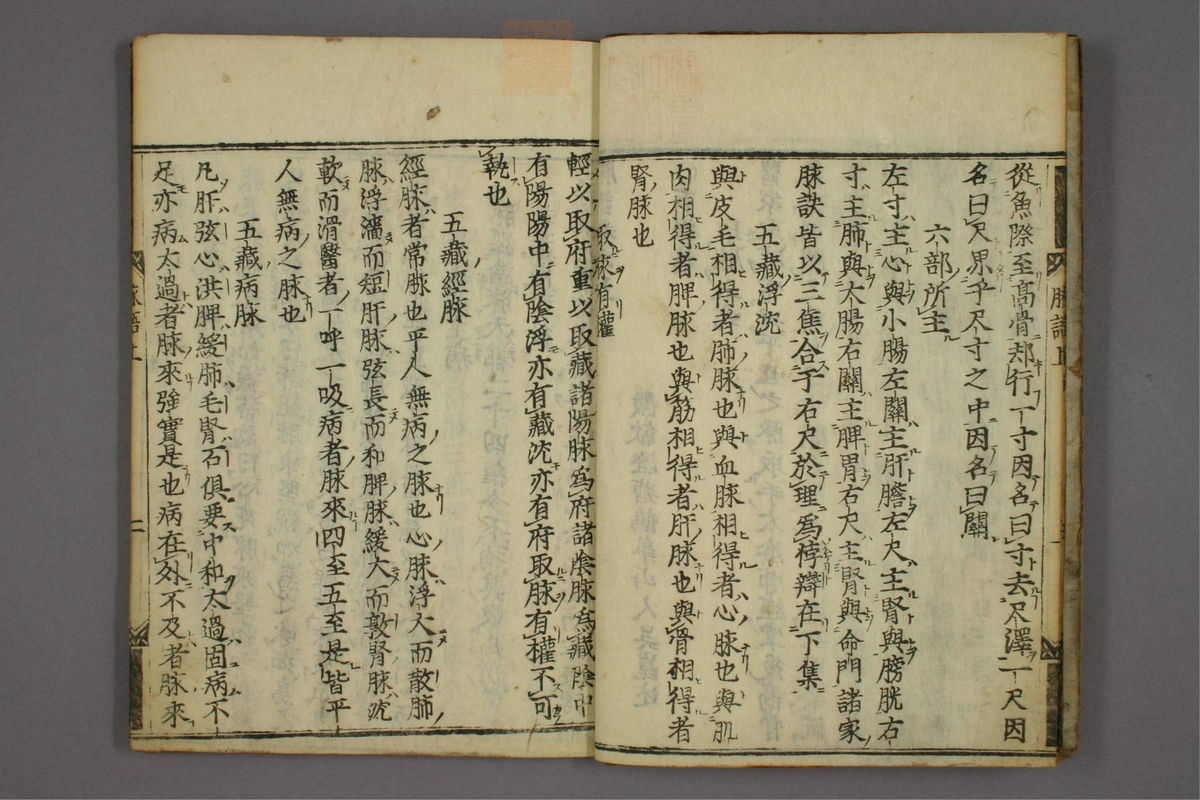 從魚際至高骨却行一寸因名曰寸去尺澤一尺因
名曰尺界乎尺寸之中因名曰關
六部所主
左寸主心與小腸左關主肝膽左尺主腎與膀胱右
寸主肺與大腸右關主脾胃右尺主腎與命門諸家
脉訣皆以三焦合于右尺於理爲悖辯在下集
五藏浮沈
與皮毛相得者肺脉也與血脉相得者心脉也與肌
肉相得者脾脉也與筋相得者肝脉也與骨相得者
腎脉也
取脉有權
輕以取府重以取藏諸陽脉爲府諸陰脉爲藏陰中
有陽陽中有陰浮亦有藏沈亦有府取脉有權不可
執也
五藏經脉
經脉者常脉也平人無病之脉也心脉浮大而散肺
脉浮濇而短肝脉弦長而和脾脉緩大而敦腎脉沈
軟而滑醫者一呼一吸病者脉來四至五至是皆平
人無病之脉也
五藏病脉
凡肝弦心洪脾緩肺毛腎石俱要中和太過固病不
足亦病太過者脉來強實是也病在外不及者脉來
脉語上